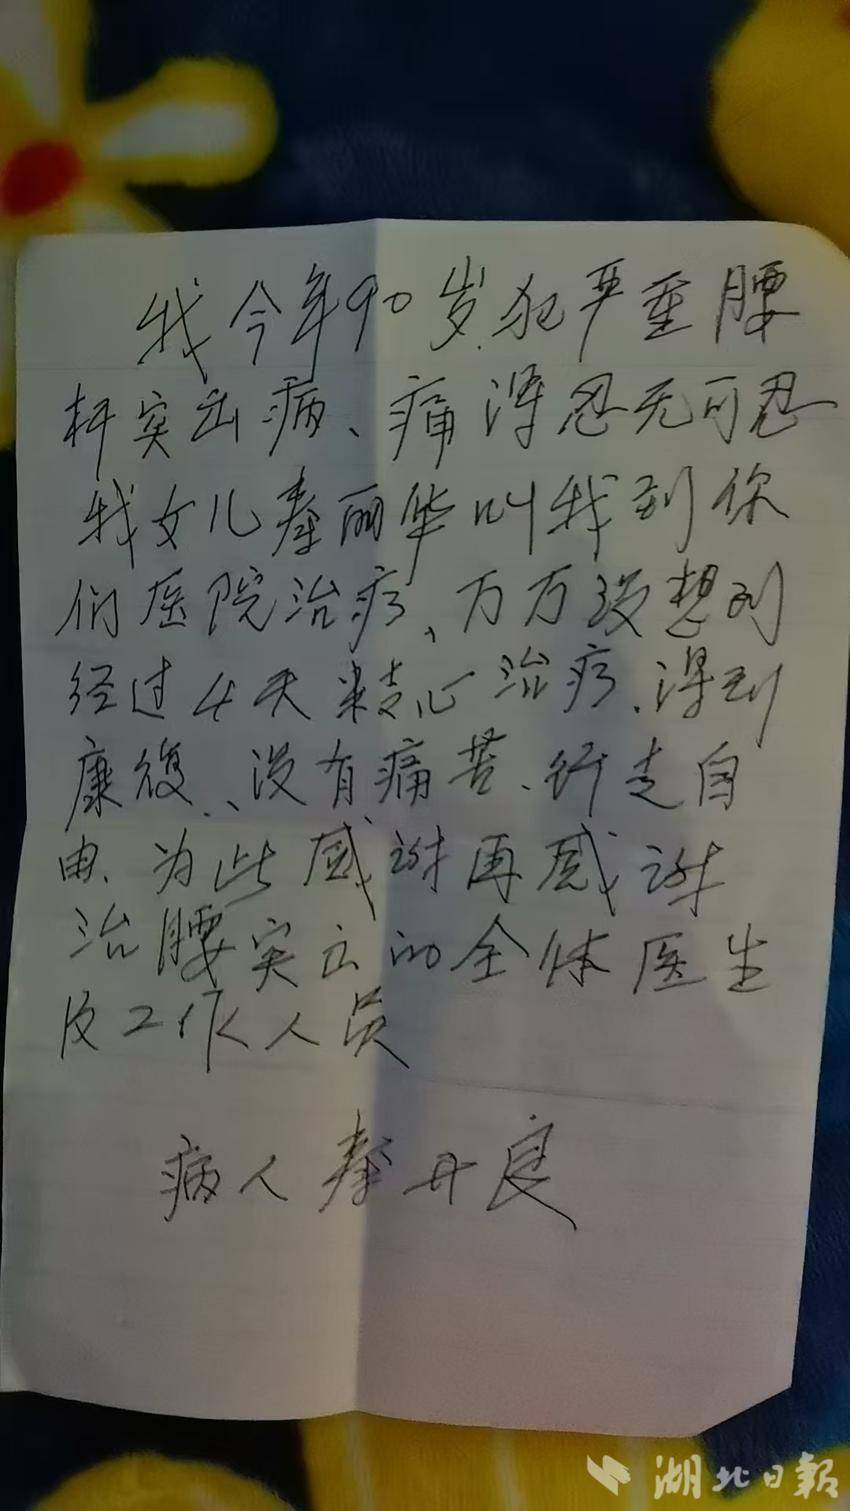 我今年90岁.犯严重腰
杆突出病、痛得忍无可忍
我女儿秦丽华叫我到你
们医院治疗、万万没想到
经过4天精心治疗.得到
康復、没有痛苦、行走自
由、为此感谢再感谢
治腰突出的全体医生
及工作人员
病人秦丹良
湖北日报